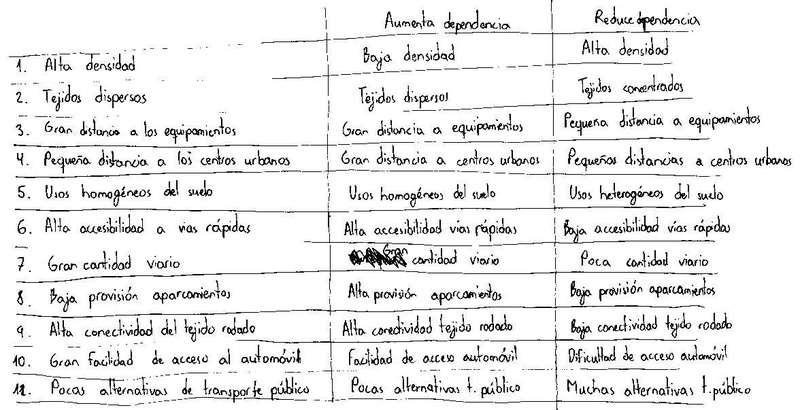 Aumenta dependencia Reduce dependencia
1. Alta densidad Baja densidad Alta densidad
2. Tejidos dispersos Tejidos dispersos Tejidos concentrados
3. Gran distancia a los equipamientos Gran distancia a equipamientos Pequeña distancia a equipamientos
4. Pequeña distancia a los centros urbanos Gran distancia a centros urbanos Pequeñas distancias a centros urbanos
5. Usos homogéneos del suelo Usos homogéneos del suelo Usos heterogéneos del suelo
6. Alta accesibilidad a vias rápidas Alta accesibilidad vías rápidas Baja accesibilidad vías rápidas
7. Gran cantidad viario Gran cantidad viario Poca cantidad viario
8. Baja provisión aparcamientos Alta provisión aparcamientos Baja provisión aparcamientos
9. Alta conectividad del tejido rodado Alta conectividad tejido rodado Baja conectividad tejido rodado
10. Gran facilidad de acceso al automóvil Facilidad de acceso automóvil Dificultad de acceso automóvil
12. Pocas alternativas de transporte público Pocas alternativas t. público Muchas alternativas t. público